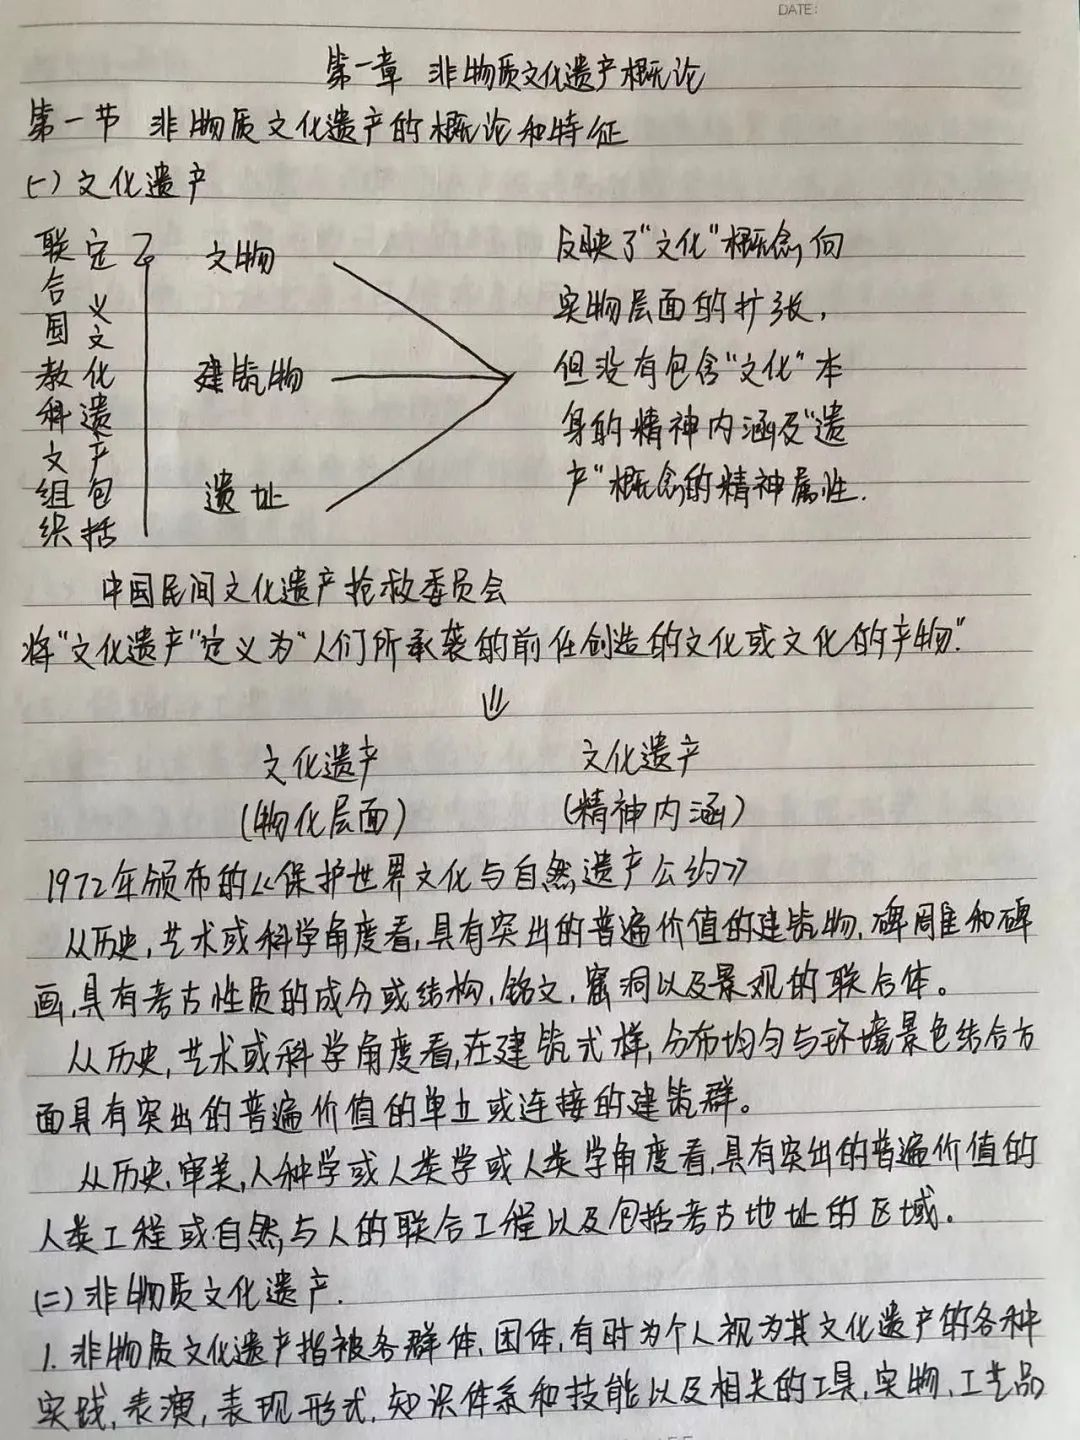 DATE:
第一章 非物质文化遗产概论
第一节 非物质文化遗产的概论和特征
(一)文化遗产
联合国教科文组织
定义文化遗产包括
文物
建筑物
遗址
反映了"文化"概念向
实物层面的扩张,
但没有包含"文化"本
身的精神内涵及"遗
产"概念的精神属性.
中国民间文化遗产抢救委员会
将"文化遗产"定义为"人们所承袭的前任创造的文化或文化的产物".
文化遗产 文化遗产
(物化层面) (精神内涵)
1972年颁布的《保护世界文化与自然遗产公约》
从历史,艺术或科学角度看,具有突出的普遍价值的建筑物,碑雕和碑
画,具有考古性质的成分或结构,铭文,窟洞以及景观的联合体。
从历史,艺术或科学角度看,在建筑式样,分布均匀与环境景色结合方
面具有突出的普遍价值的单立或连接的建筑群。
从历史,审美,人种学或人类学或人类学角度看,具有突出的普遍价值的
人类工程或自然与人的联合工程以及包括考古地址的区域。
(二)非物质文化遗产.
1.非物质文化遗产指被各群体,团体,有时为个人视为其文化遗产的各种
实践,表演,表现形式,知识体系和技能以及相关的工具,实物,工艺品